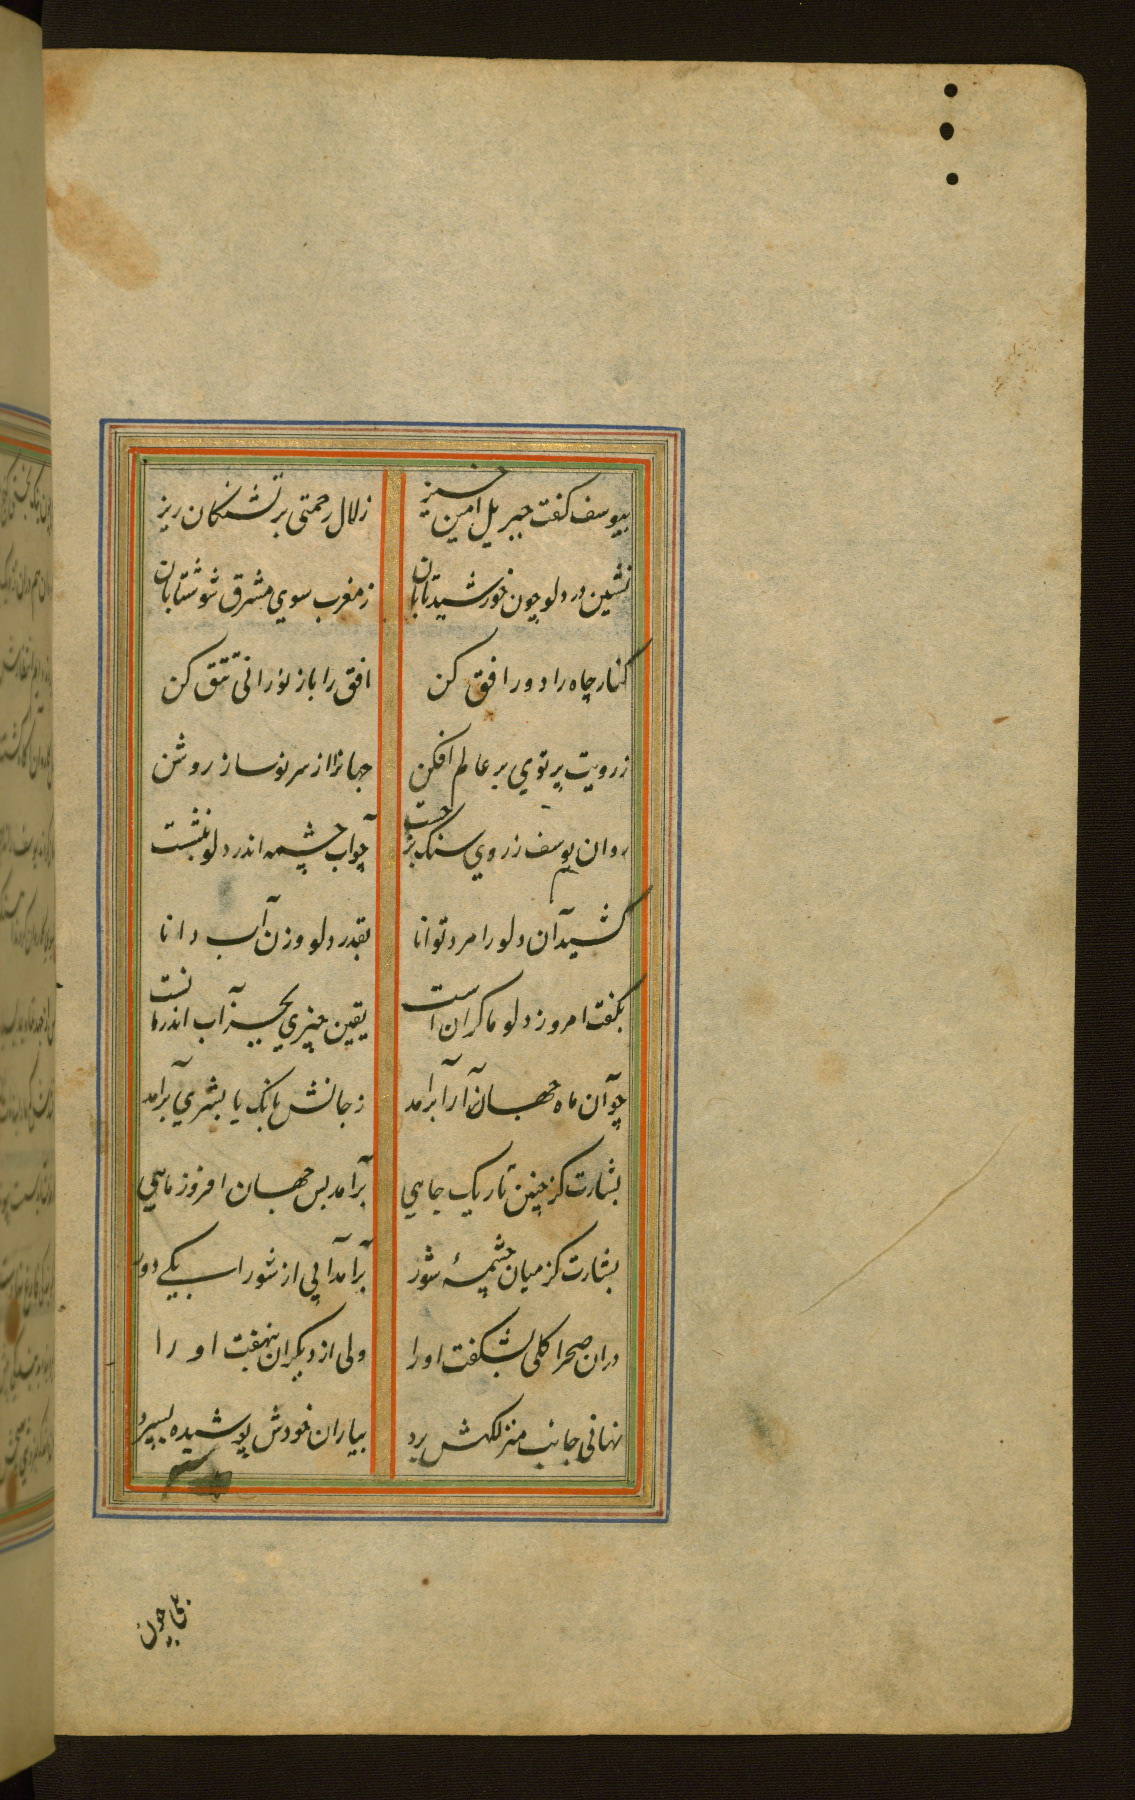 بیوسف کفت جبریل امین خیز زلال رحمتی برتشنکان ریز
نشین در دلو چون خورشید تابان زمغرب سوي مشرق شو شتابان
کنار چاه را دور افق کن افق را باز نورانی تتق کن
زرویت پرتوي بر عالم افکن جهانرا از سر نو ساز روشن
روان یوسف زروي سنک برجست چوآب چشمه اندر دلو بنشست
کشید آن دلو را مرد توانا بقدر دلو وزن آب دانا
بکفت امروز دلو ما کران است یقین چیزي بجز آب اندرانست
چو آن ماه جهان آرا برآمد زجانش بانک یا بشري برآمد
بشارت کز چنین تاریک چاهي برآمد بس جهان افروز ماهي
بشارت کز میان چشمهٔ شور برآمد آبی از شوراب یکے دور
دران صحرا کلی بشکفت اورا ولی از دیکران بنهفت او را
نهانی جانب منزلکهش برد بیاران خودش پوشیده بسپرد
بلی چون